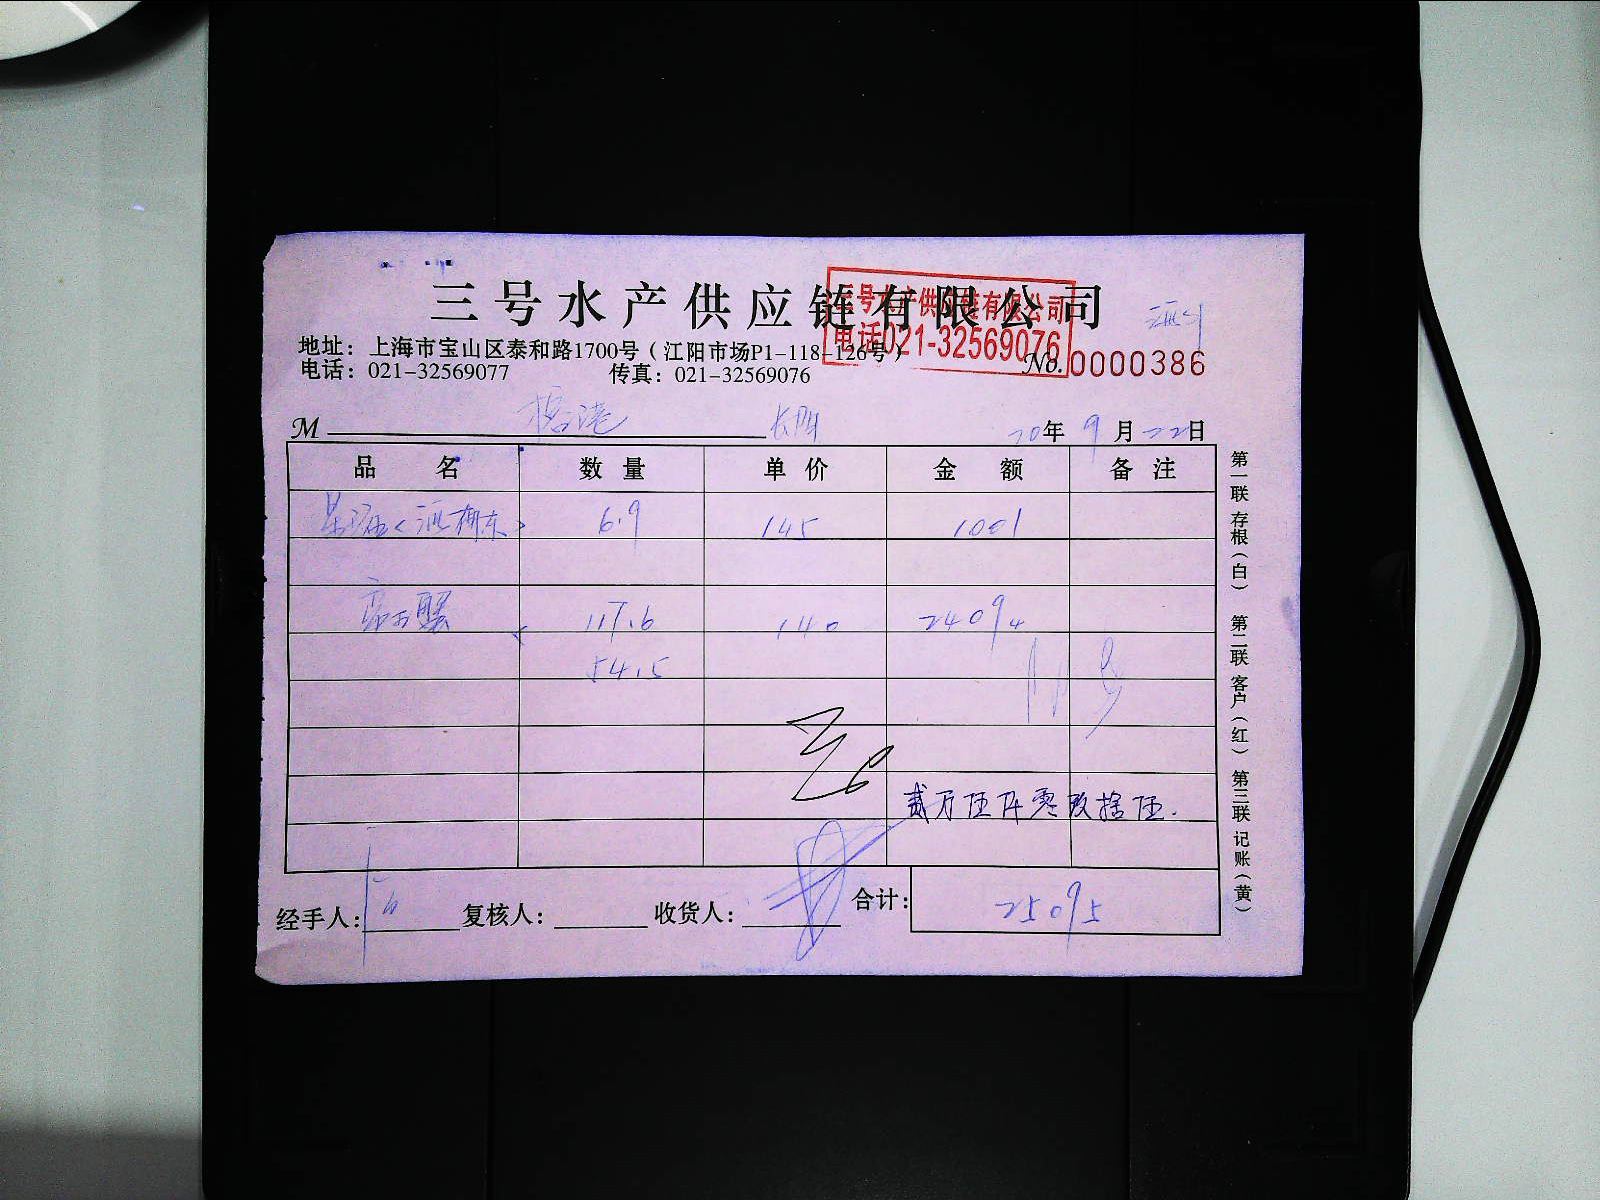 三号水产供应链有限公司
三号水产供应链有限公司
电话021-32569076
地址：上海市宝山区泰和路1700号（江阳市场P1-118-126号）
电话：021-32569077 传真：021-32569076
No.0000386
M
20年9月22日
品名 数量 单价 金额 备注
6.9 145 1001
117.6 140 24094
54.5
贰万伍仟零玖拾伍.
经手人： 复核人： 收货人： 合计： 25095
第一联存根（白） 第二联客户（红） 第三联记账（黄）